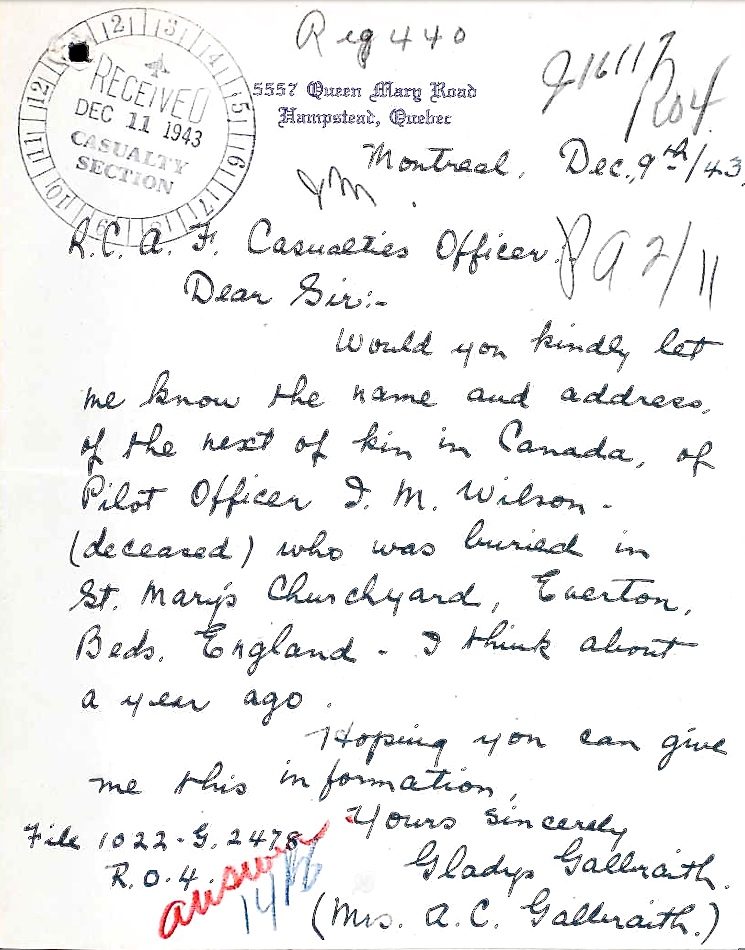 Reg 440
RECEIVED
DEC 11 1943
CASUALTY
SECTION
5557 Queen Mary Road
Hampstead, Quebec
J16117
R04
Montreal, Dec. 9th/43.
R.C.A.F. Casualties Officer.
PA 2/11
Dear Sir:-
Would you kindly let
me know the name and address,
of the next of kin in Canada, of
Pilot Officer I. M. Wilson -
(deceased) who was buried in
St. Mary's Churchyard, Everton,
Beds. England - I think about
a year ago.
Hoping you can give
me this information,
Yours sincerely
Gladys Galbraith.
(Mrs. A.C. Galbraith.)
File 1022-G.2478
R.O.4.
answer